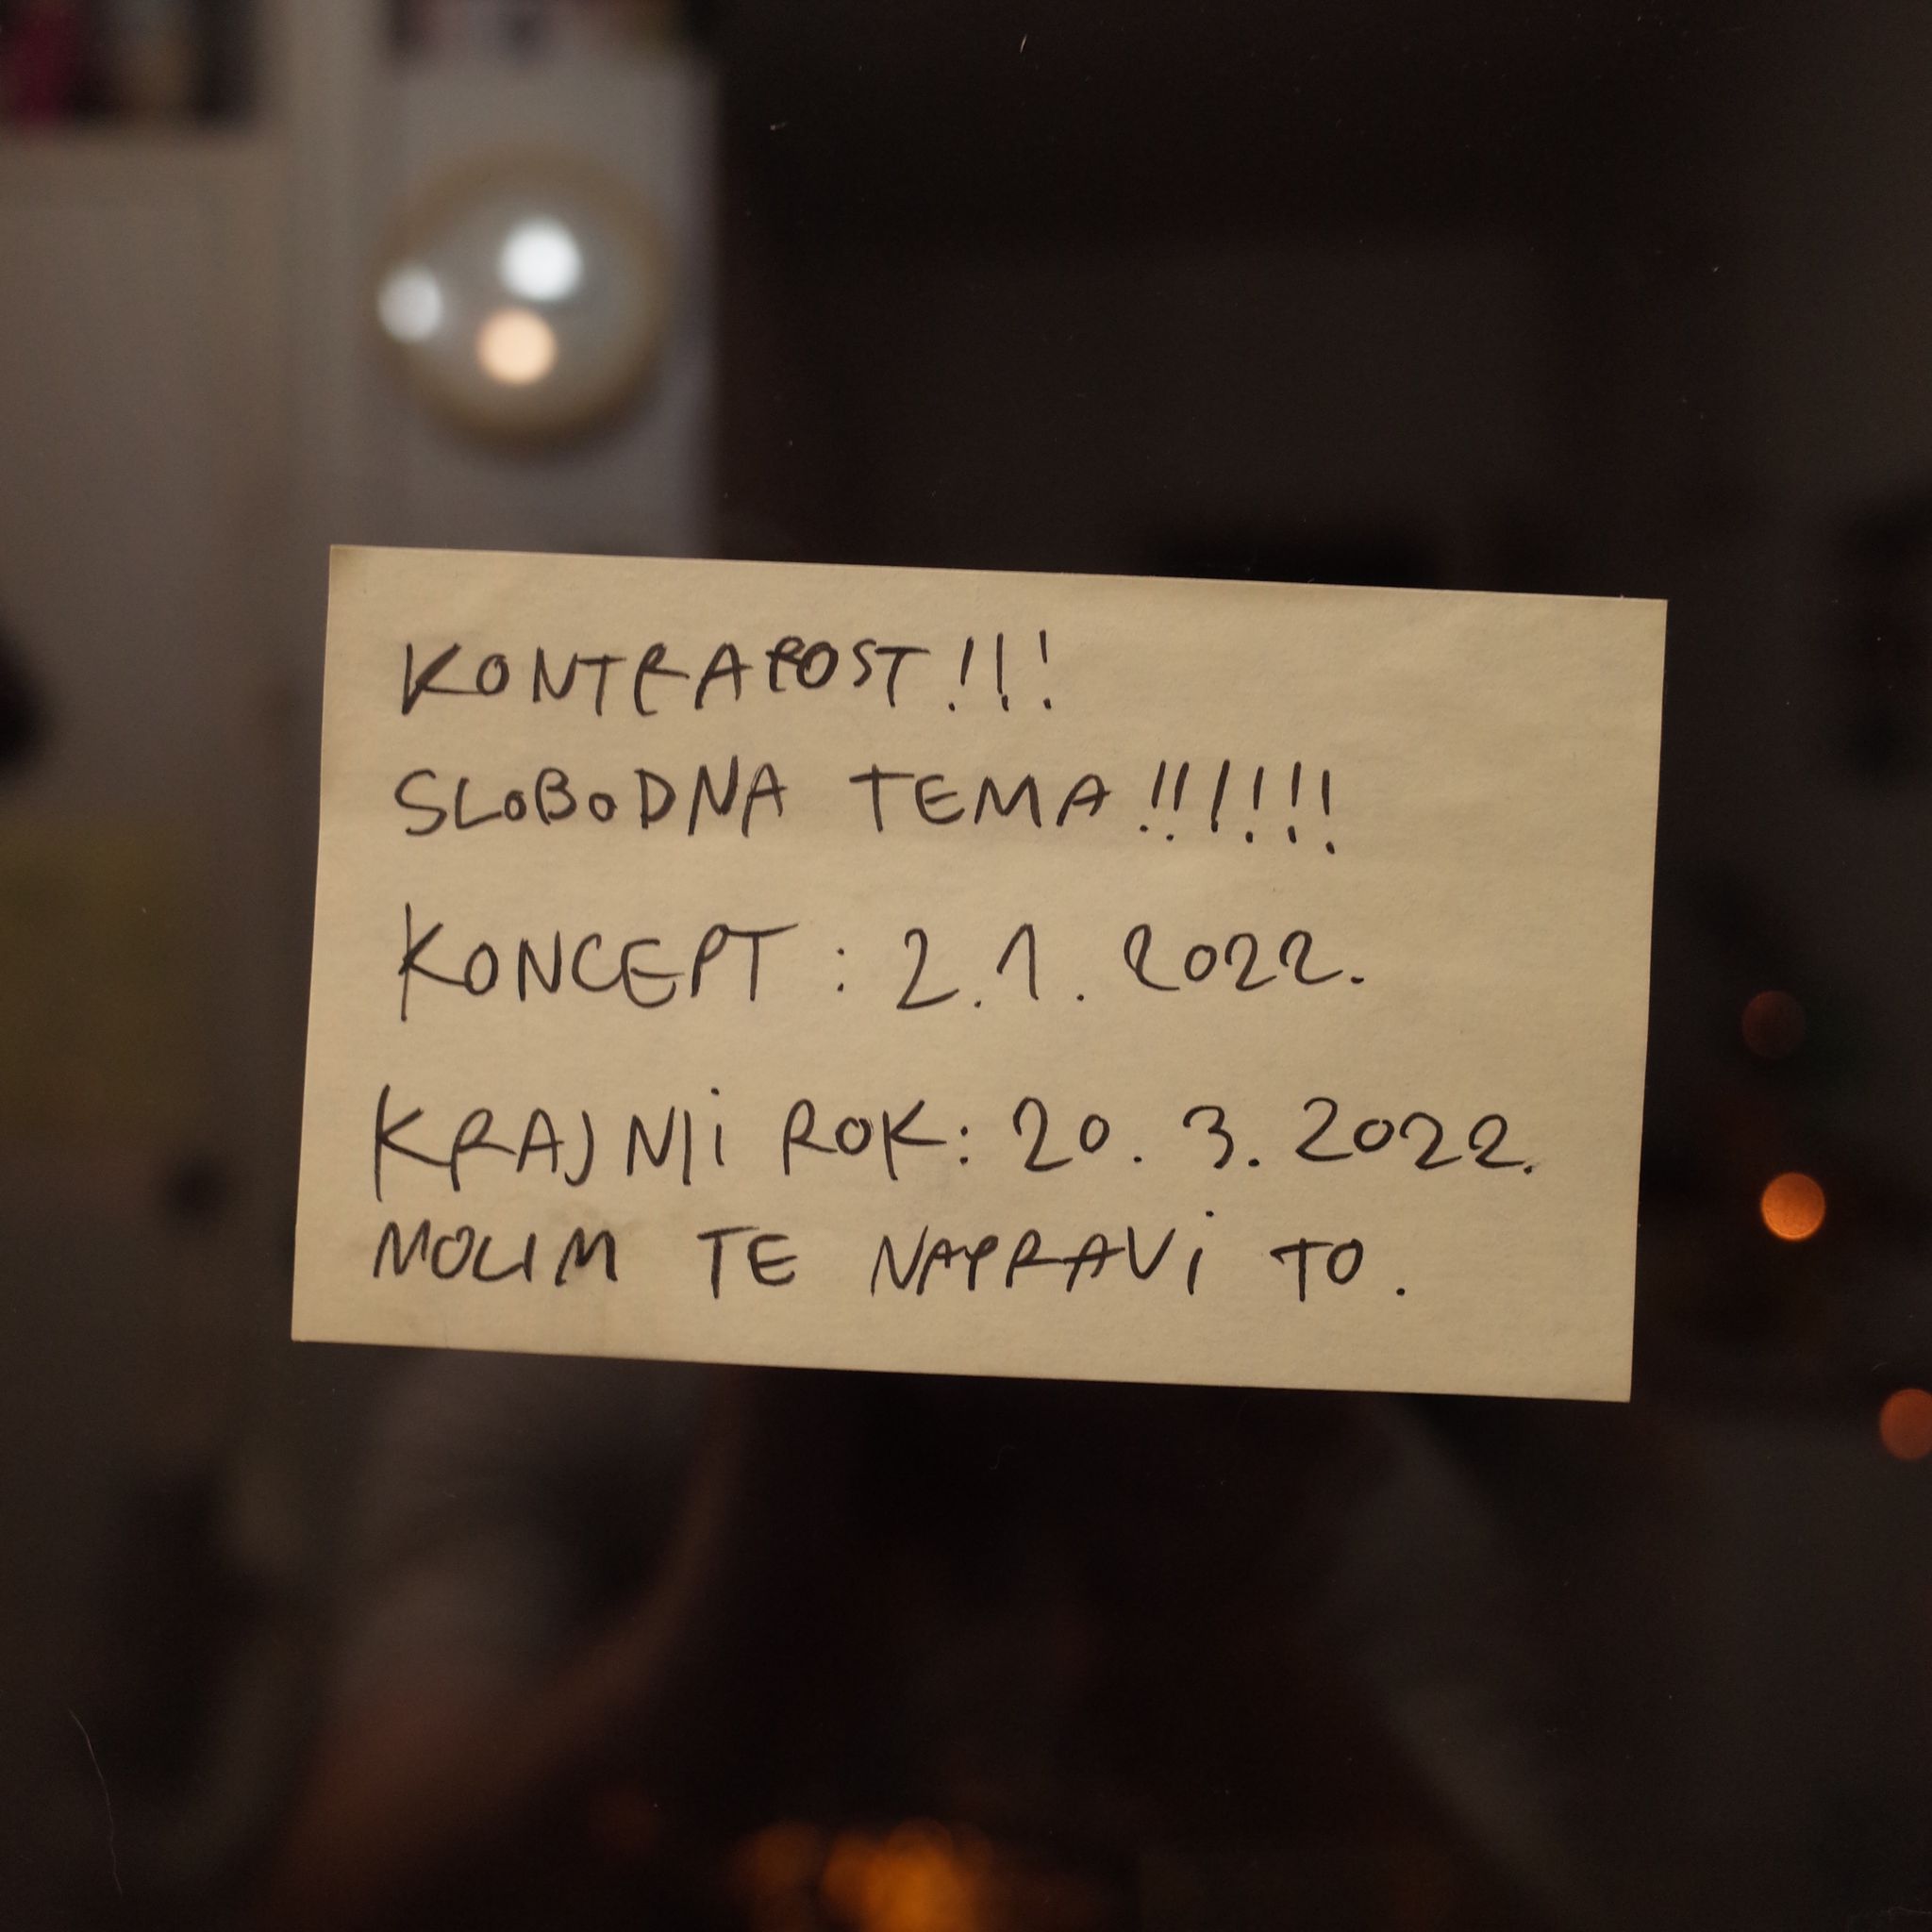 KONTRAPOST!!!
SLOBODNA TEMA!!!!!!
KONCEPT: 2.1. 2022.
KRAJNJI ROK: 20. 3. 2022.
MOLIM TE NAPRAVI TO.